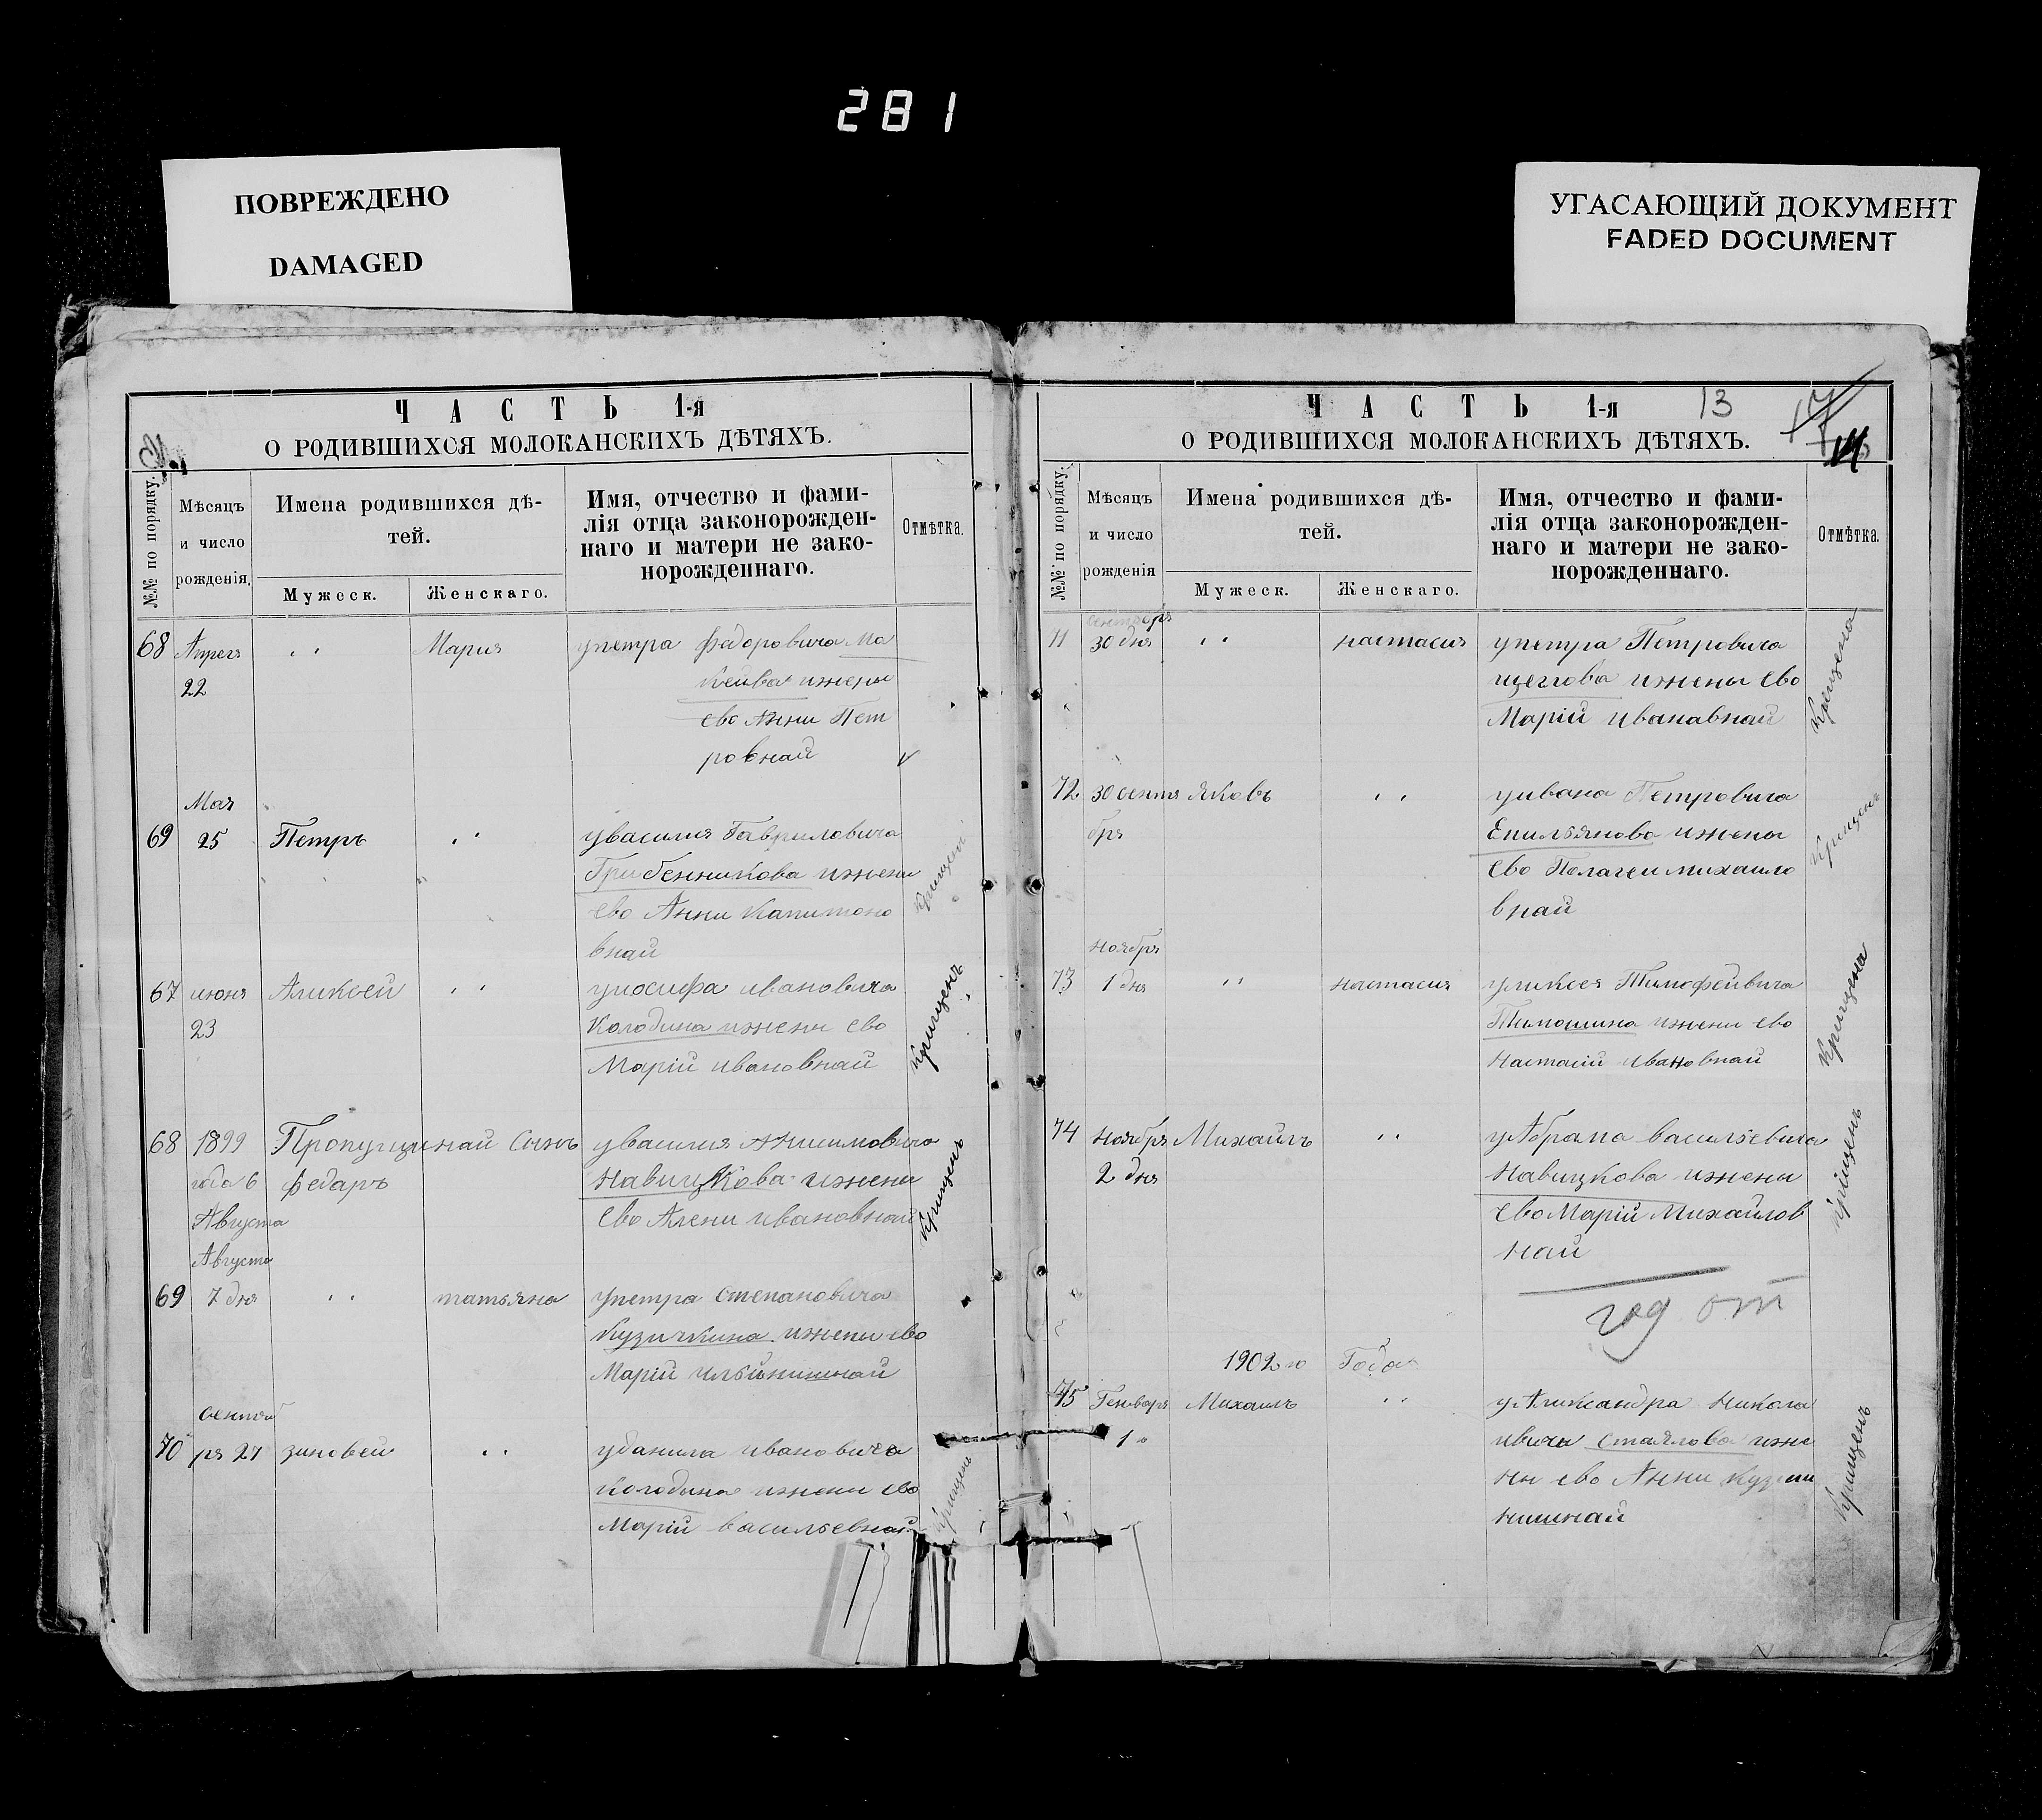 281
ПОВРЕЖДЕНО
DAMAGED
УГАСАЮЩИЙ ДОКУМЕНТ
FADED DOCUMENT
ЧАСТЬ 1-я
О РОДИВШИХСЯ МОЛОКАНСКИХЪ ДѢТЯХЪ.
№№ по порядку.
Мѣсяцъ
и число
рожденія.
Имена родившихся дѣ-
тей.
Мужеск.
Женскаго.
Имя, отчество и фами-
лія отца законорожден-
наго и матери не зако-
норожденнаго.
Отмѣтка.
68 Апреля " Мария упетра федоровича Ма
22 кеива ижены
ево Анни Пет
ровнай
Мая
69 25 Петръ " увасилия Гавриловича
Грибенникова ижени
ево Анни Капитоно
внай
крищенъ
67 июня Аликсей " уиосифа ивановича
23 Колодина ижени ево
Марій ивановнай
крищенъ
68 1899 Пропущинай Сынъ увасилия Анисимовича
года 6 федаръ Навицкова ижени
Августа ево Алени ивановнай
крищенъ
Августа
69 7 дня " татьяна упетра степановича
Кузичкина ижени ево
Марій ильинишнай
сентяб
70 ря 27 зиновей " уданила ивановича
колодина ижени ево
Марій васильевнай
крищенъ
ЧАСТЬ 1-я 13
О РОДИВШИХСЯ МОЛОКАНСКИХЪ ДѢТЯХЪ.
№№ по порядку.
Мѣсяцъ
и число
рожденія
Имена родившихся дѣ-
тей.
Мужеск.
Женскаго.
Имя, отчество и фами-
лія отца законорожден-
наго и матери не зако-
норожденнаго.
Отмѣтка.
сентября
71 30 дня " настасия упетра Петровича
щеглова ижены ево
Марій иванавнай
крещена
72 30 сентя яковъ " уивана Петровича
бря Емильянова ижены
ево Пелагеи михаило
внай
крищенъ
ноября
73 1 дня " настасия уликсея Тимофейвича
Тимошина ижени ево
настасии ивановнай
крищена
74 ноября Михаилъ " уАбрама васильевича
2 дня Навицкова ижены
ево Марій Михайлов
най
крищенъ
год
1902 го Года
75 Генваря Михаилъ " уАликсандра никола
1 ивича стаялова ижи
ны ево Анни кузми
нишнай
крищенъ